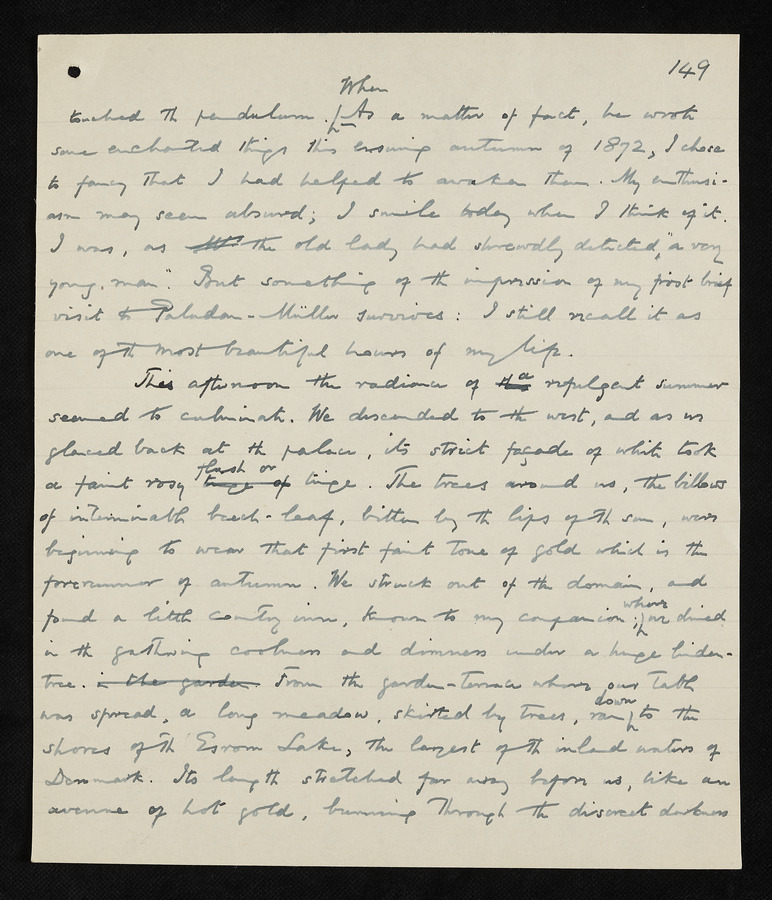 149
When
touched the pendulum. As a matter of fact, he wrote
some enchanted things this ensuing autumn of 1872, I chose
to fancy that I had helped to awaken them. My enthusi-
asm may seem absurd; I smile today when I think of it.
I was, as the old lady had shrewdly detected, "a very
young man". But something of the impression of my first brief
visit to Paludan-Müller survives: I still recall it as
one of the most beautiful hours of my life.
This afternoon the radiance of the a refulgent summer
seemed to culminate. We descended to the west, and as we
glanced back at the palace, its strict façade of white took
flush or
a faint rosy tinge of tinge. The trees around us, the billows
of interminable beech-leaf, bitten by the lips of the sun, were
beginning to wear that first faint tone of gold which is the
forerunner of autumn. We struck out of the domain, and
where
found a little country inn, known to my companion; we dined
in the gathering coolness and dimness under a huge linden-
tree. in the garden. From the garden-terrace where our table
down
was spread, a long meadow, skirted by trees, ran to the
shores of the Esrom Lake, the largest of the inland waters of
Denmark. Its length stretched far away before us, like an
avenue of hot gold, burning through the discreet darkness